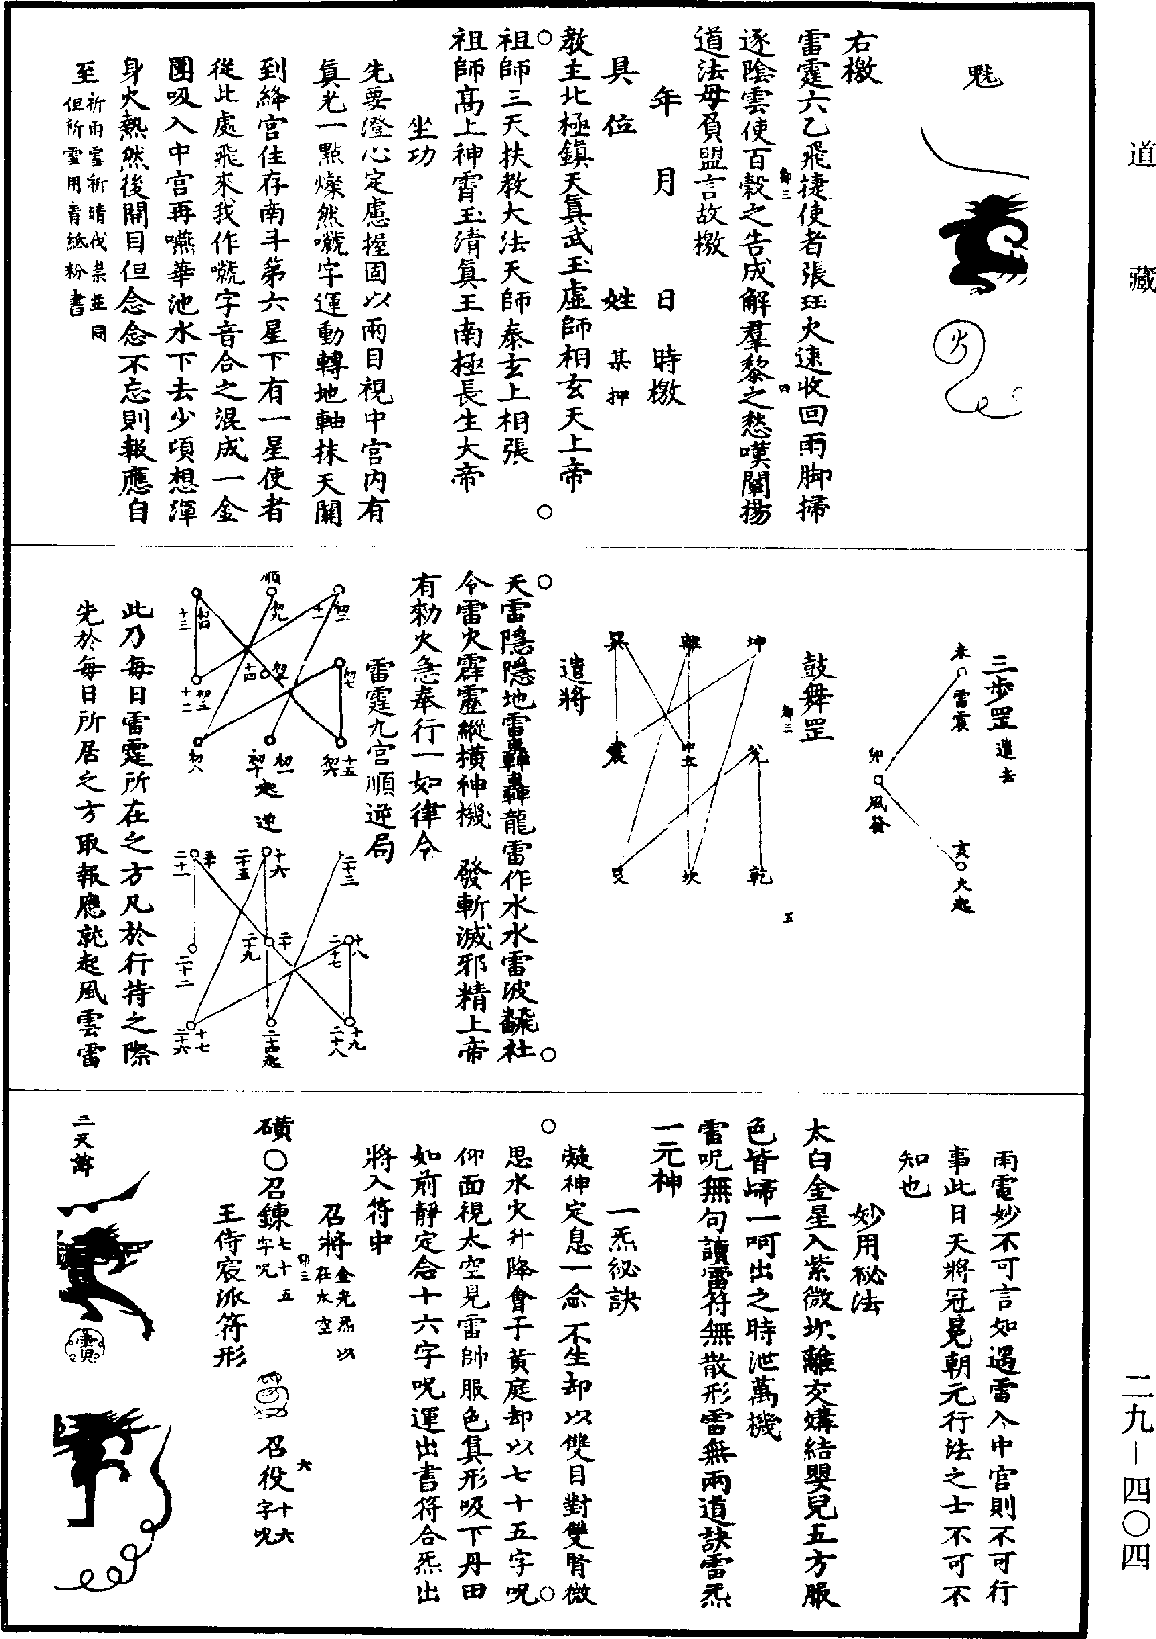 道藏
二九-四〇四
魁
火
右檄
雷霆六乙飛捷使者張珏火速收回雨脚掃
逐陰雲使百穀之告成解羣黎之愁嘆闡揚
道法毋負盟言故檄
年 月 日 時檄
具位 姓 某押
教主北極鎮天真武玉虛師相玄天上帝
祖師三天扶教大法天師泰玄上相張
祖師高上神霄玉清真王南極長生大帝
坐功
先要澄心定慮握固以兩目視中宮內有
真光一點燦然嘰字運動轉地軸抹天關
到絳宮住存南斗第六星下有一星使者
從此處飛來我作嘰字音合之混成一金
團吸入中宮再嚥華池水下去少頃想渾
身火熱然後開目但念念不忘則報應自
至祈雨雪祈晴伐祟並同
但所雪用膏紙粉書
三步罡進去
未 雷震
卯 風發
亥 火起
鼓舞罡
坤 離 巽
兌 中五 震
乾 坎 艮
遣將
天雷隱隱地雷轟轟龍雷作水水雷波飜社
令雷火霹靂縱橫神機 發斬滅邪精上帝
有勑火急奉行一如律令
雷霆九宮順逆局
順
逆
此乃每日雷霆所在之方凡於行持之際
先於每日所居之方取報應就起風雲雷
雨電妙不可言如遇雷入中宮則不可行
事此日天將冠冕朝元行法之士不可不
知也
妙用秘法
太白金星入紫微坎離交媾結嬰兒五方服
色皆歸一呵出之時泄萬機
雷呪無句讀雷符無散形雷無兩道訣雷炁
一元神
一炁秘訣
凝神定息一念不生却以雙目對雙腎微
思水火升降會于黃庭却以七十五字呪
仰面視太空見雷帥服色真形吸下丹田
如前靜定念十六字呪運出書符合炁出
將入符中
召將金光炁以在太空
磺〇召鍊七十五字呪 召役十六字呪
王侍宸派符形